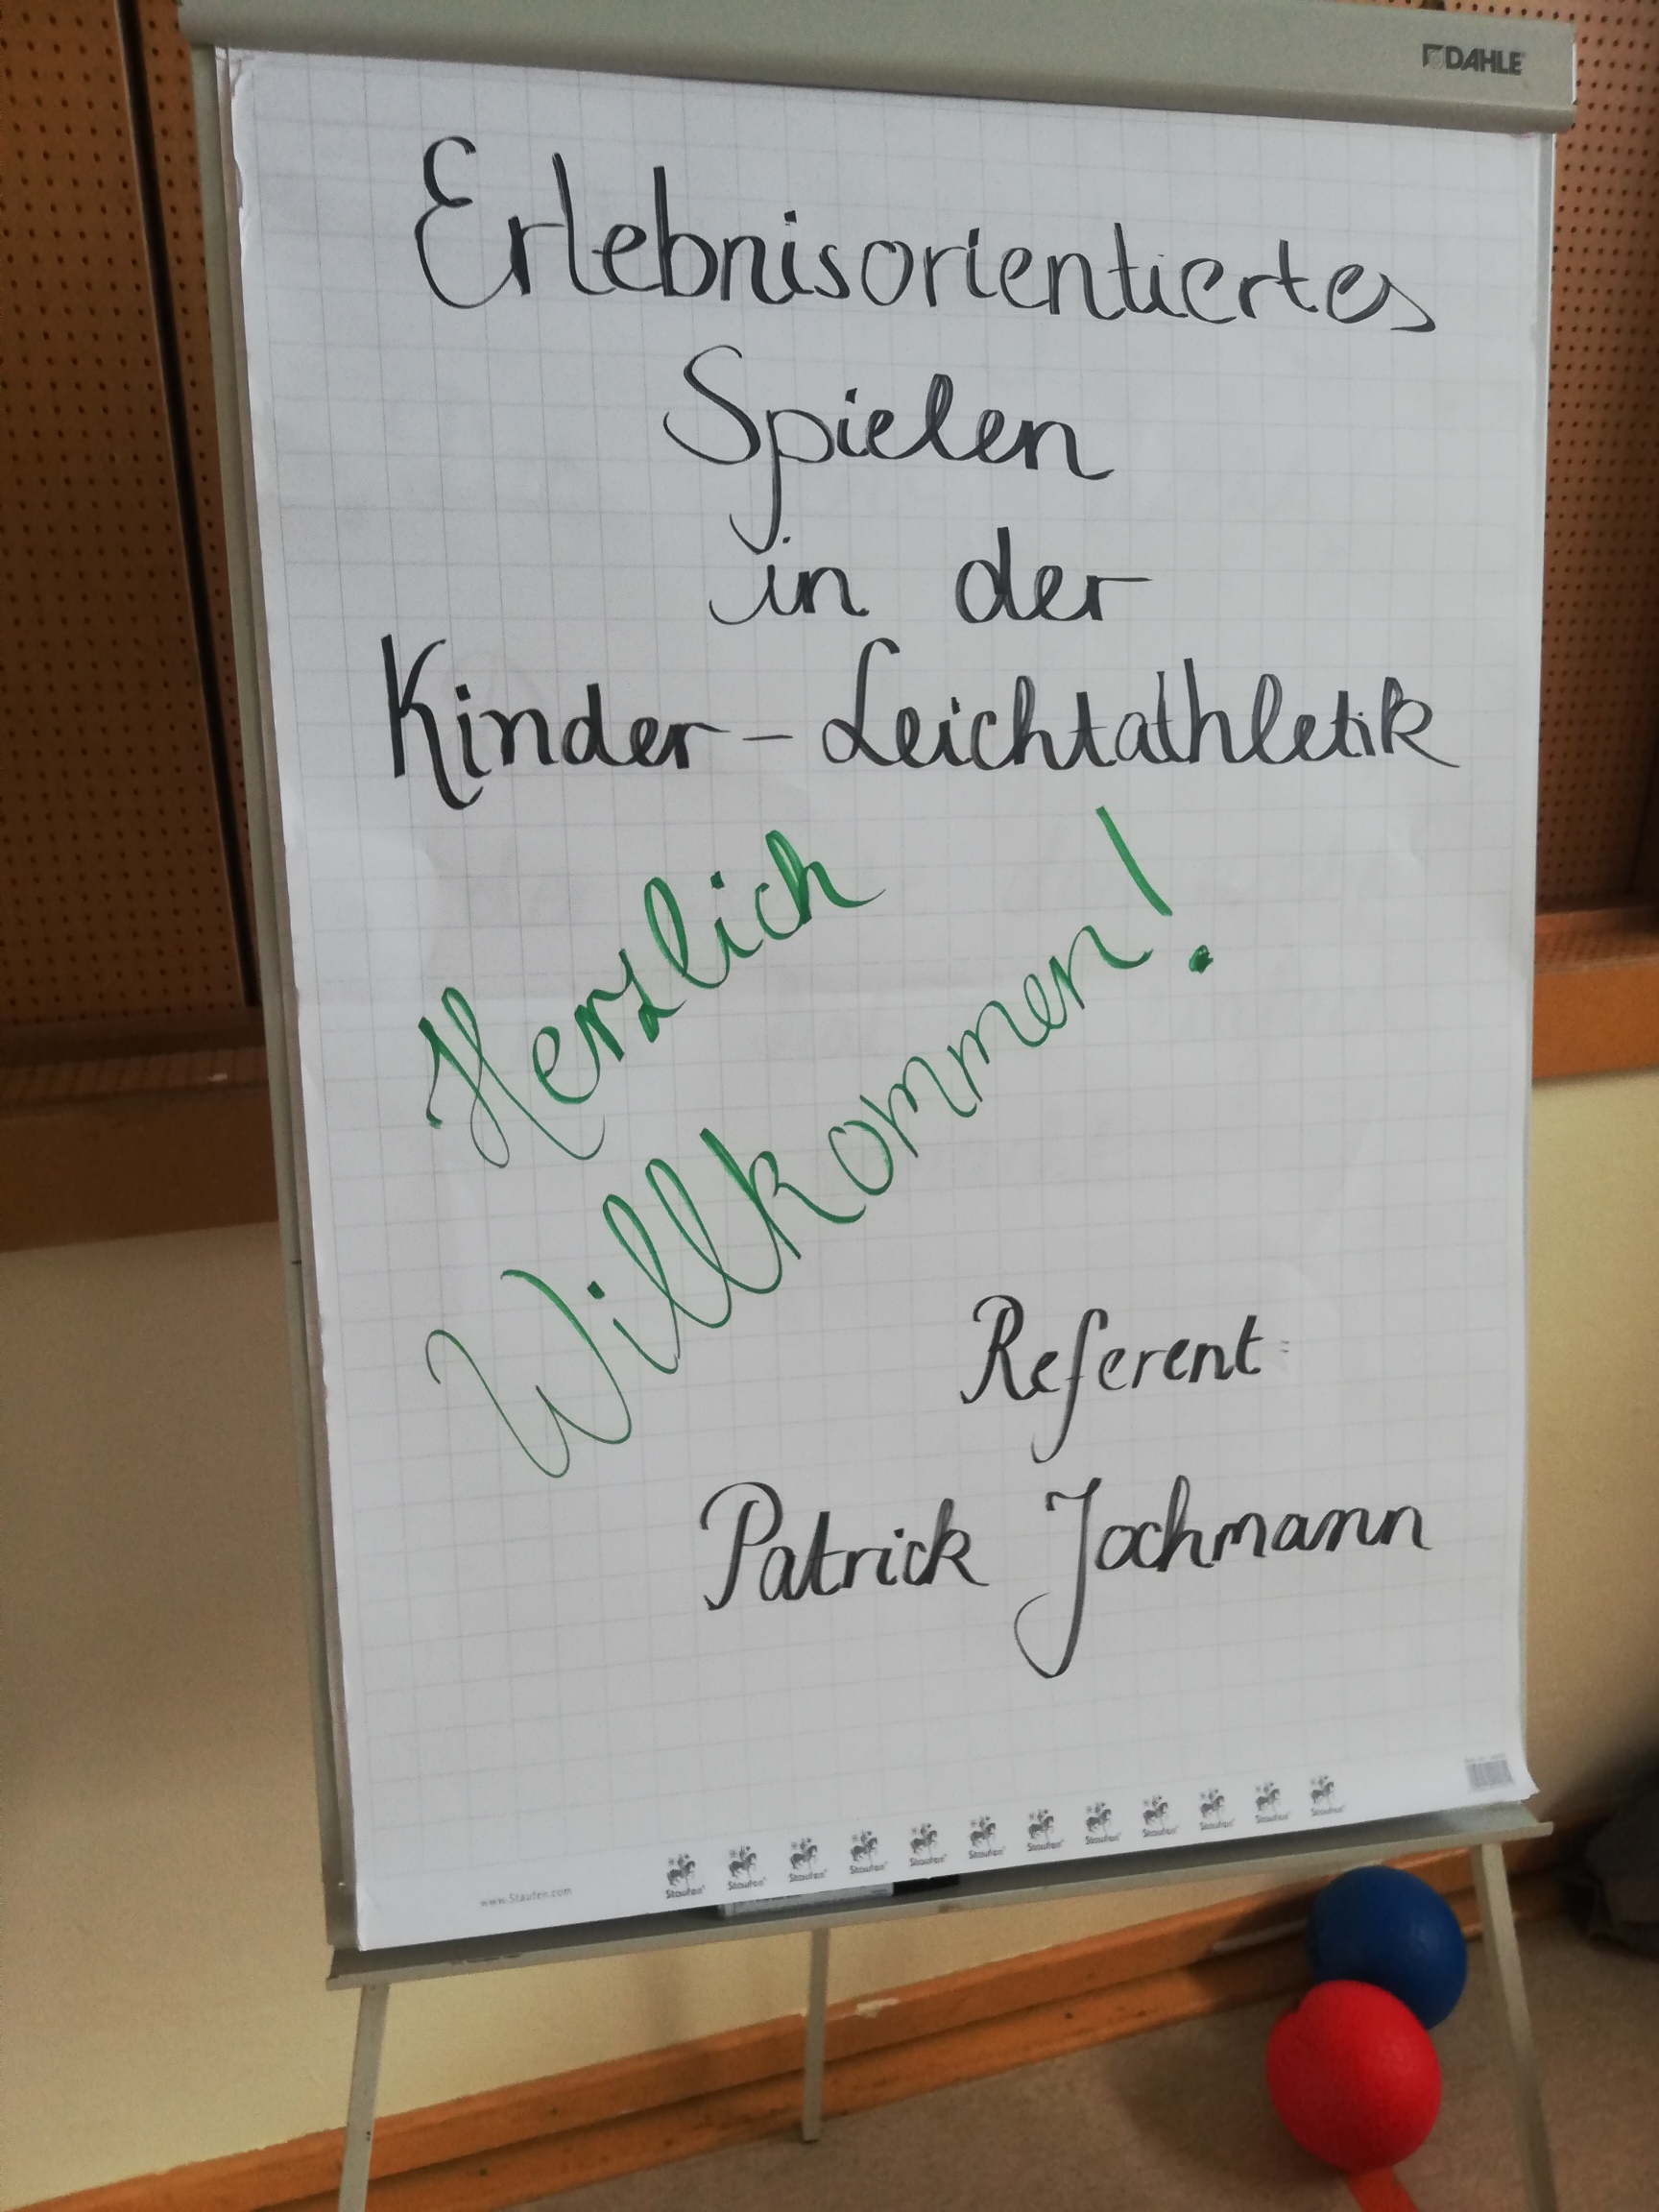 DAHLE
Erlebnisorientiertes
Spielen
in der
Kinder-Leichtathletik
Herzlich
Willkommen!
Referent:
Patrick Jochmann
www.Staufen.com
Staufen Staufen Staufen Staufen Staufen Staufen Staufen Staufen Staufen Staufen Staufen Staufen